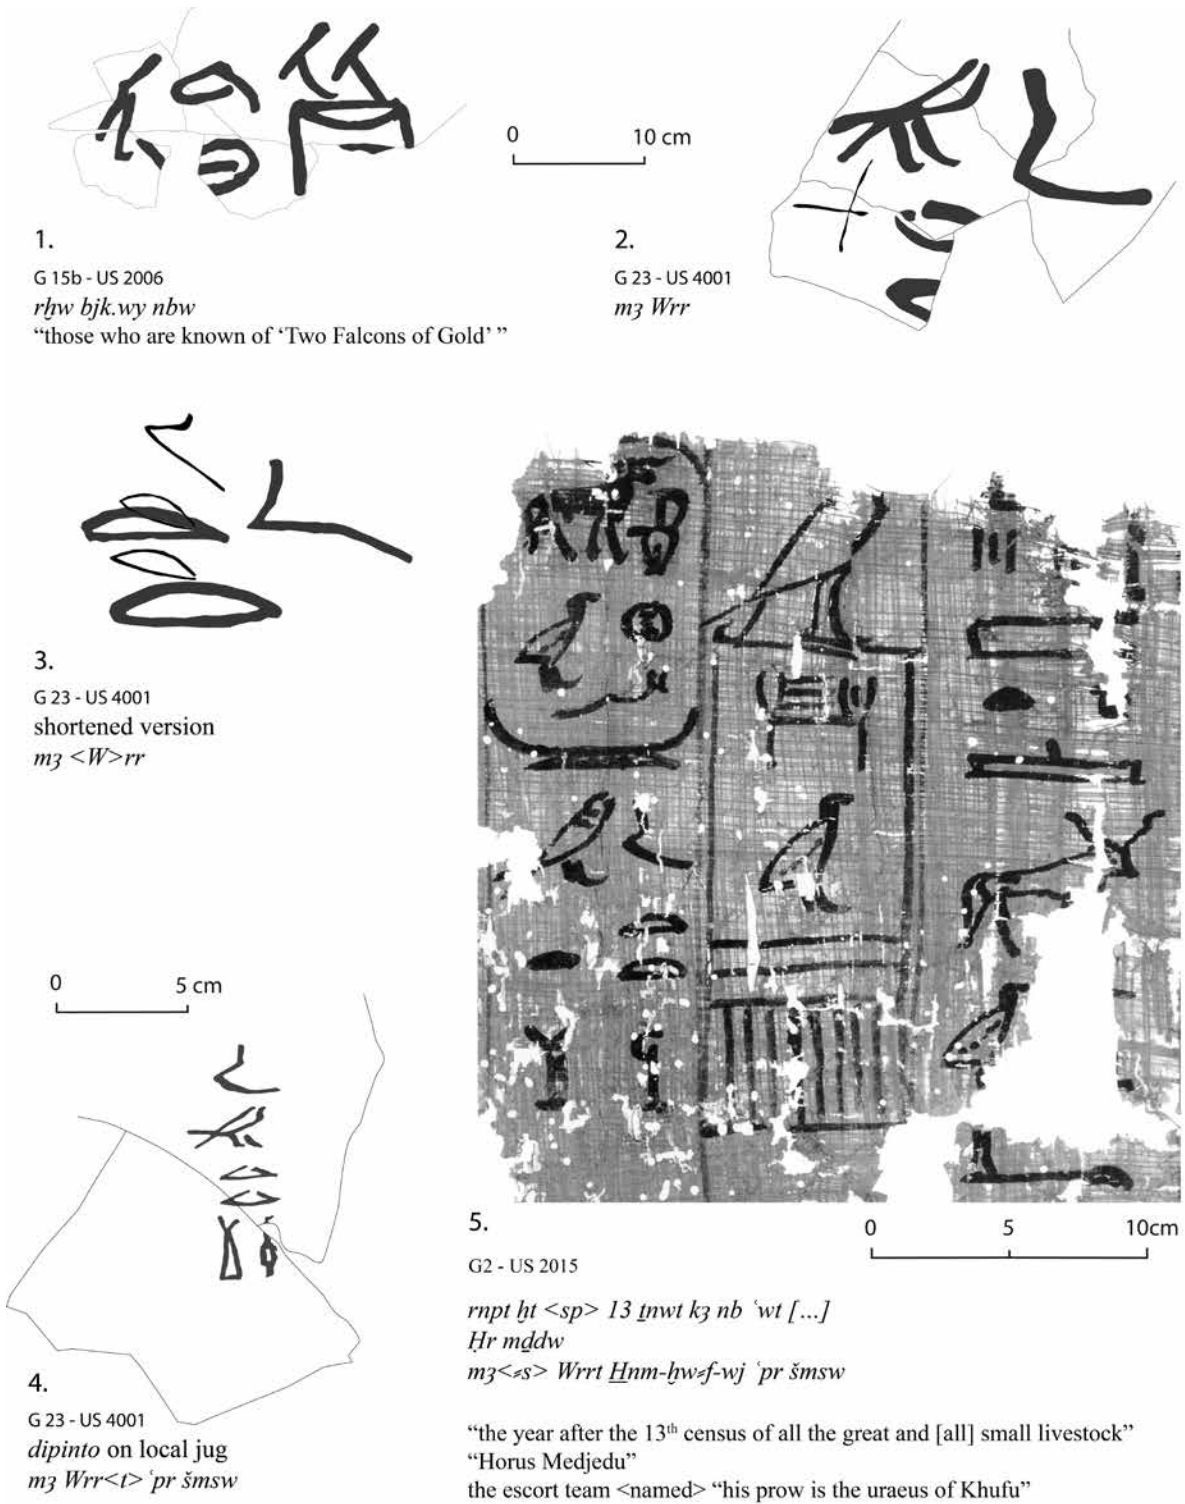 0 10 cm
1.
G 15b - US 2006
rḫw bjk.wy nbw
“those who are known of ‘Two Falcons of Gold’ ”
2.
G 23 - US 4001
mȝ Wrr
3.
G 23 - US 4001
shortened version
mȝ <W>rr
0 5 cm
4.
G 23 - US 4001
dipinto on local jug
mȝ Wrr<t> ʿpr šmsw
5.
0 5 10cm
G2 - US 2015
rnpt ḫt <sp> 13 ṯnwt kȝ nb ʿwt [...]
Ḥr mḏdw
mȝ<⸗s> Wrrt H̱nm-ḫw⸗f-wj ʿpr šmsw
“the year after the 13th census of all the great and [all] small livestock”
“Horus Medjedu”
the escort team <named> “his prow is the uraeus of Khufu”